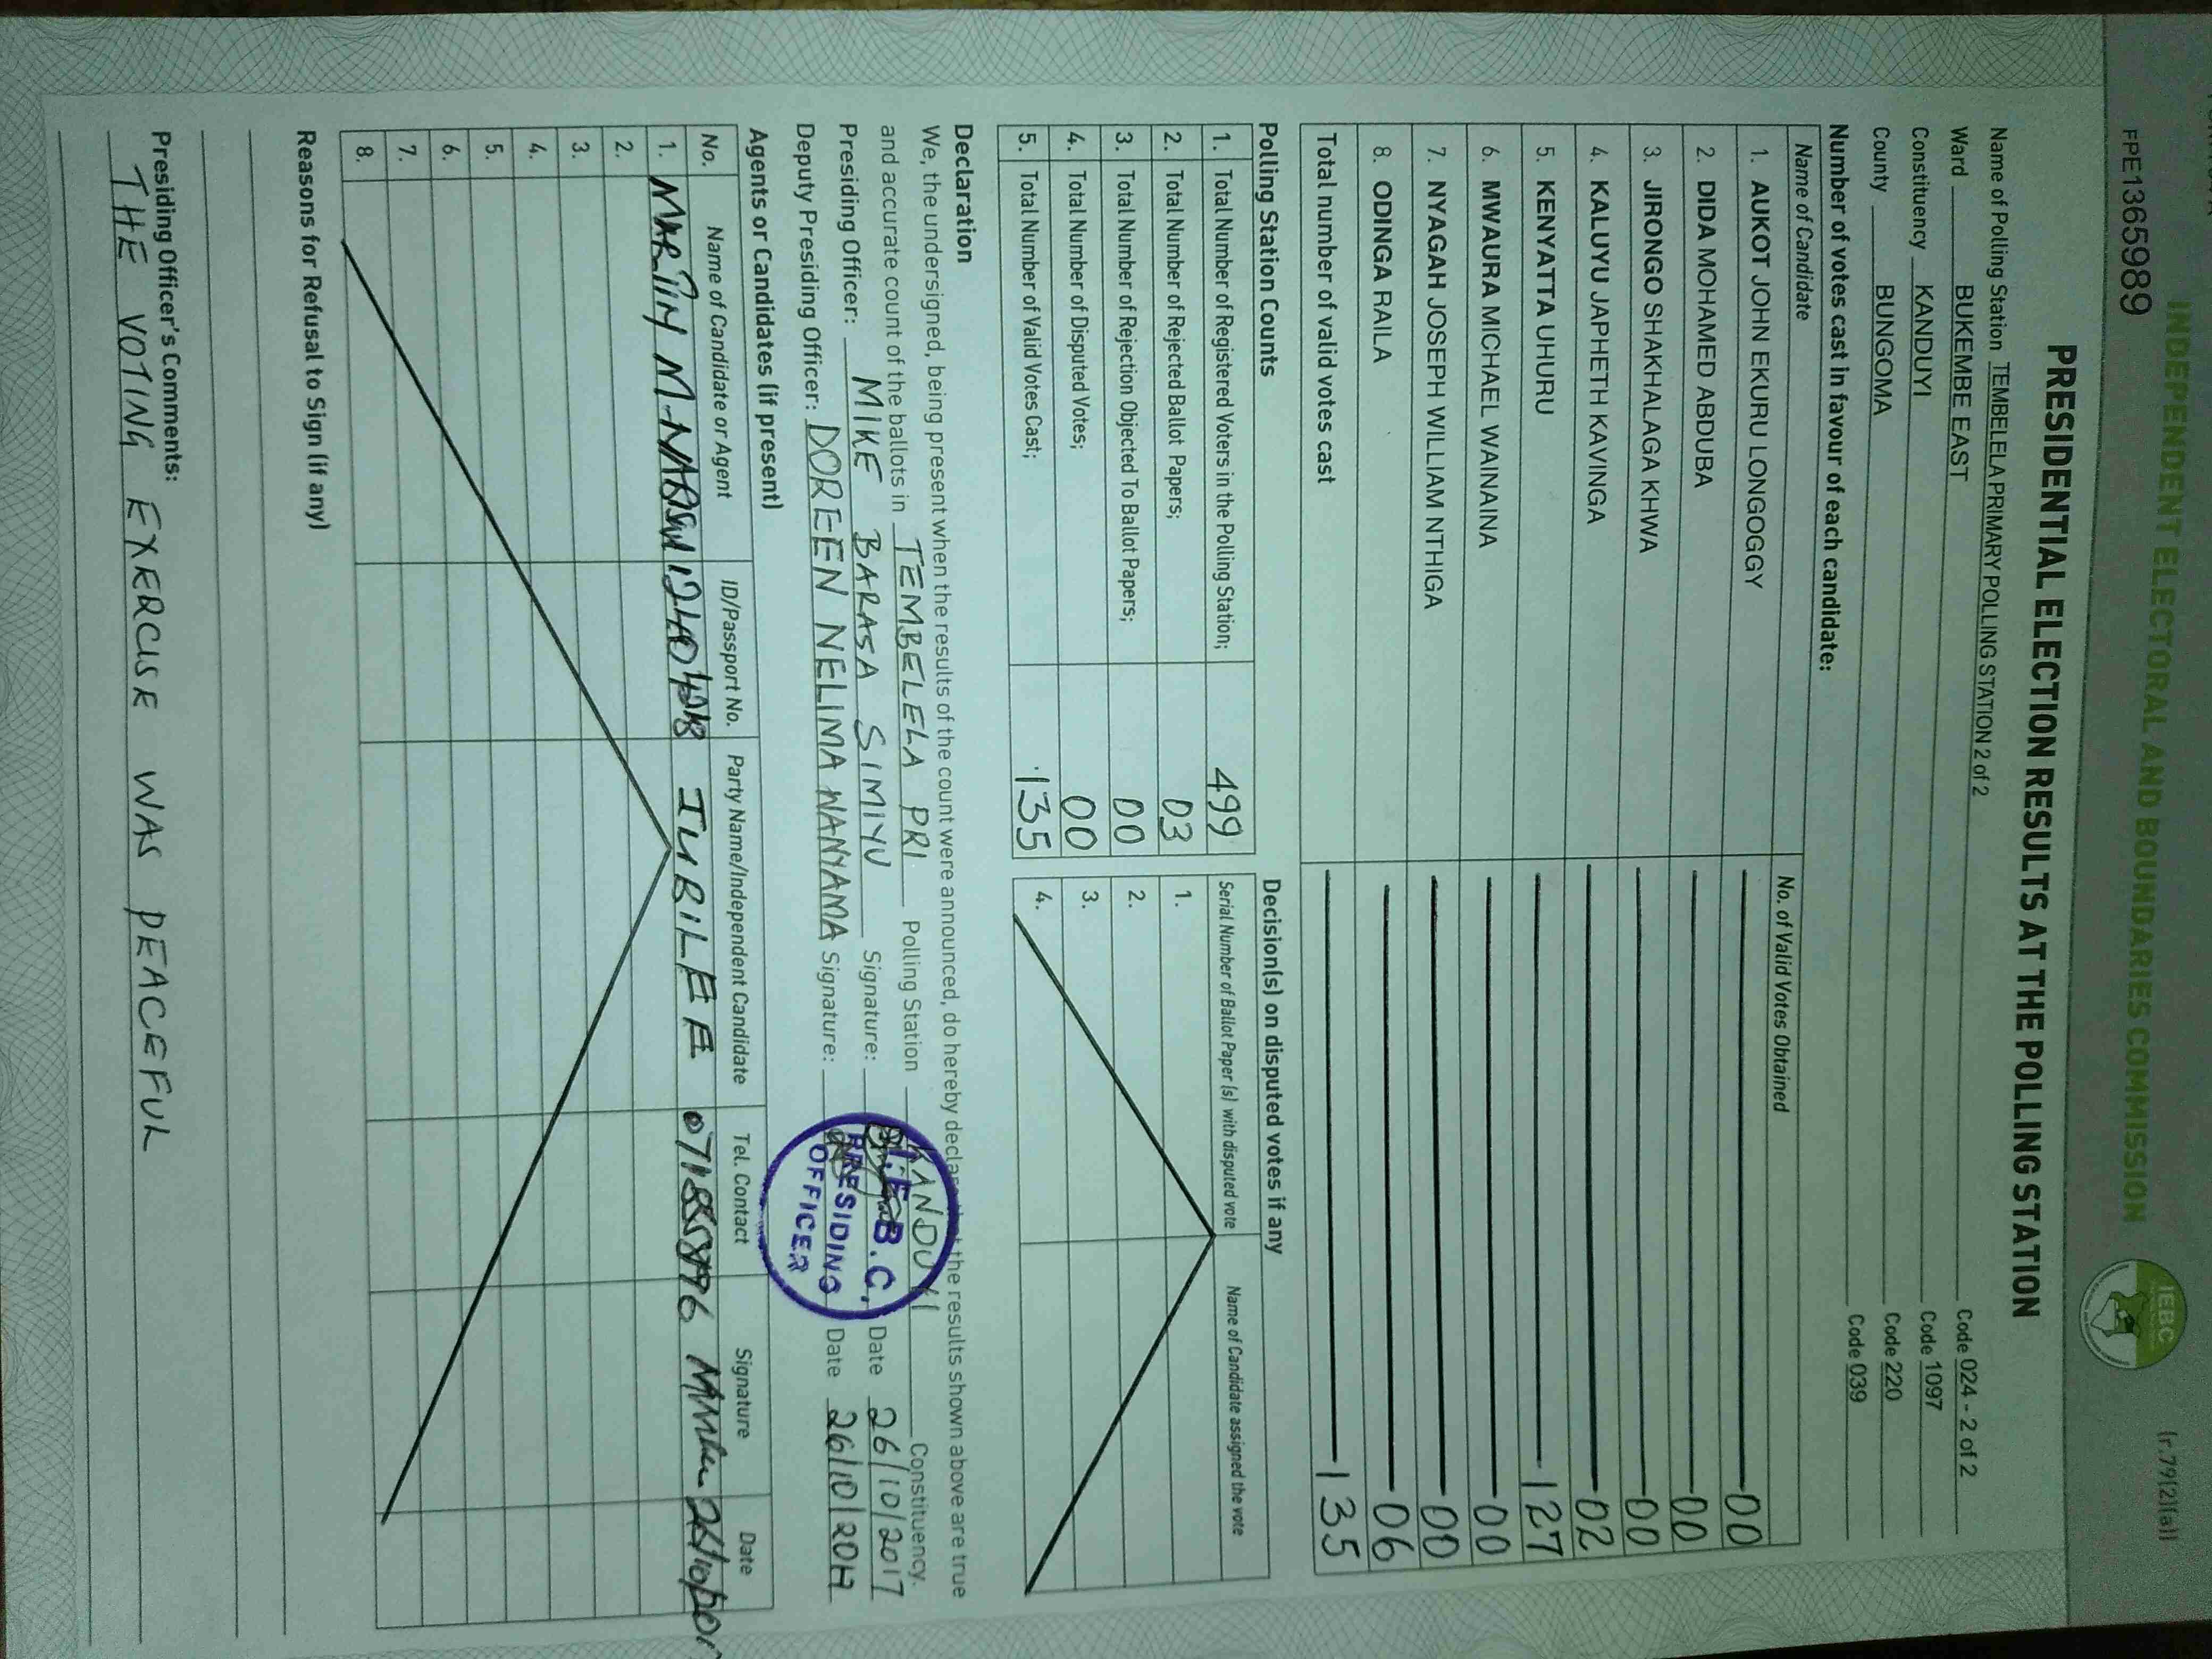 INDEPENDENT ELECTORAL AND BOUNDARIES COMMISSION
IEBC
(r.79(2)(a))
FPE1365989
PRESIDENTIAL ELECTION RESULTS AT THE POLLING STATION
Name of Polling Station TEMBELELA PRIMARY POLLING STATION 2 of 2 Code 024 - 2 of 2
Ward BUKEMBE EAST Code 1097
Constituency KANDUYI Code 220
County BUNGOMA Code 039
Number of votes cast in favour of each candidate:
Name of Candidate No. of Valid Votes Obtained
1. AUKOT JOHN EKURU LONGOGGY 00
2. DIDA MOHAMED ABDUBA 00
3. JIRONGO SHAKHALAGA KHWA 00
4. KALUYU JAPHETH KAVINGA 02
5. KENYATTA UHURU 127
6. MWAURA MICHAEL WAINAINA 00
7. NYAGAH JOSEPH WILLIAM NTHIGA 00
8. ODINGA RAILA 06
Total number of valid votes cast 135
Polling Station Counts
1. Total Number of Registered Voters in the Polling Station; 499
2. Total Number of Rejected Ballot Papers; 03
3. Total Number of Rejection Objected To Ballot Papers; 00
4. Total Number of Disputed Votes; 00
5. Total Number of Valid Votes Cast; 135
Decision(s) on disputed votes if any
Serial Number of Ballot Paper (s) with disputed vote Name of Candidate assigned the vote
1.
2.
3.
4.
Declaration
We, the undersigned, being present when the results of the count were announced, do hereby declare that the results shown above are true
and accurate count of the ballots in TEMBELELA PRI Polling Station KANDUYI Constituency.
Presiding Officer: MIKE BARASA SIMIYU Signature: Date 26/10/2017
Deputy Presiding Officer: DOREEN NELIMA WANYAMA Signature: Date 26/10/2017
I.E.B.C.
PRESIDING
OFFICER
Agents or Candidates (if present)
No. Name of Candidate or Agent ID/Passport No. Party Name/Independent Candidate Tel. Contact Signature Date
1. MARTIN M. JUBILEE
2.
3.
4.
5.
6.
7.
8.
Reasons for Refusal to Sign (if any)
Presiding Officer's Comments:
THE VOTING EXERCISE WAS PEACEFUL